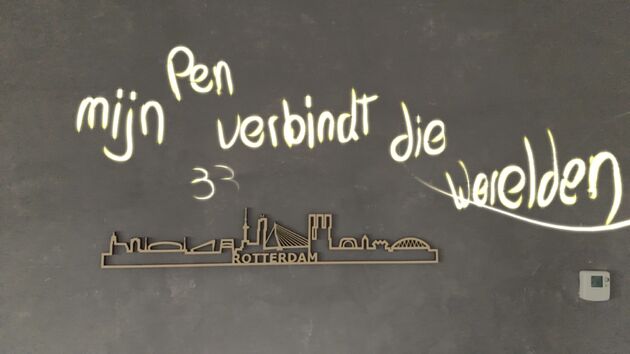 mijn Pen verbindt die werelden
33
ROTTERDAM